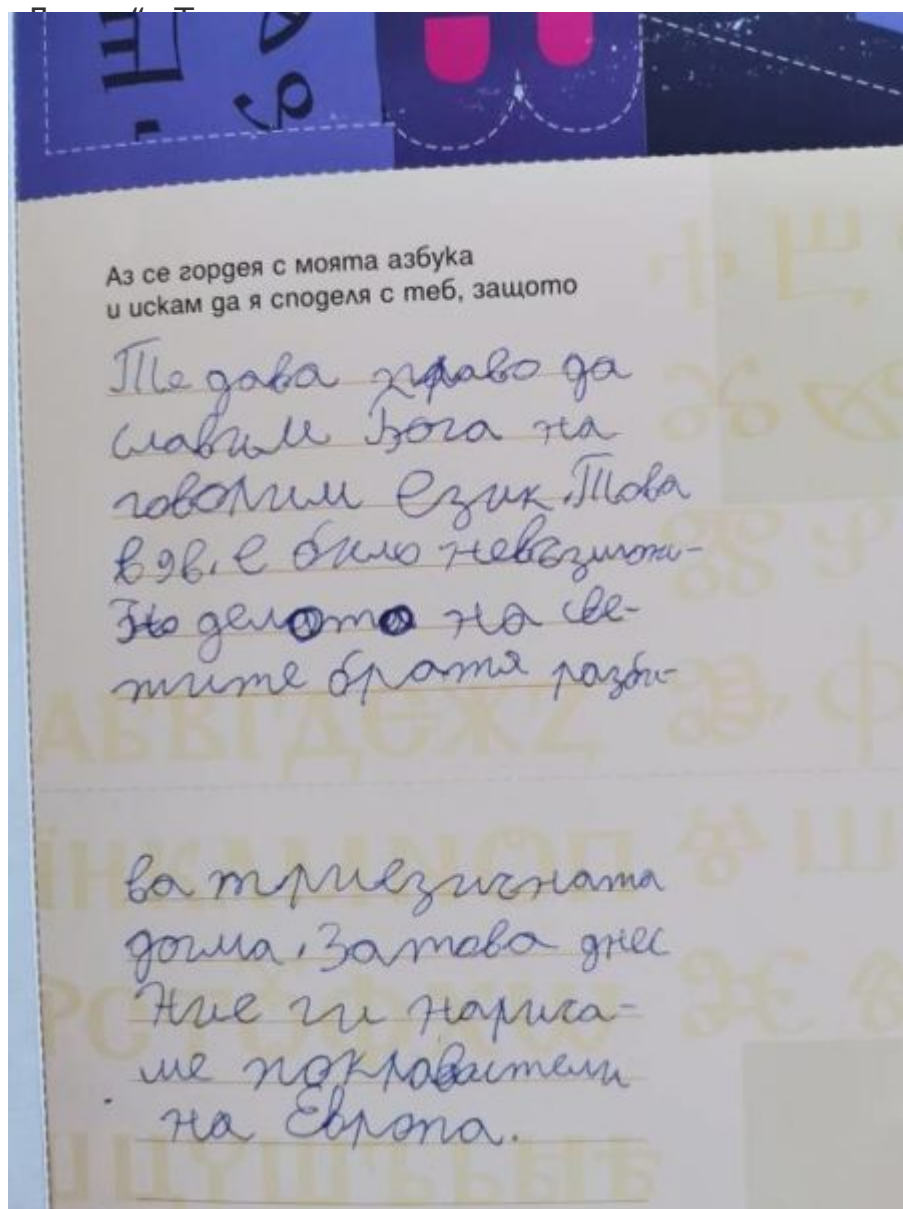 Аз се гордея с моята азбука
и искам да я споделя с теб, защото
Те дава право да
славим Бога на
говорим език. Това
в 9в. е било невъзможно-
но делото на све-
тите братя разби-
ва триезичната
догма. Затова днес
Ние ги нарича-
ме покровители
на Европа.
АБВГДЄЖZ